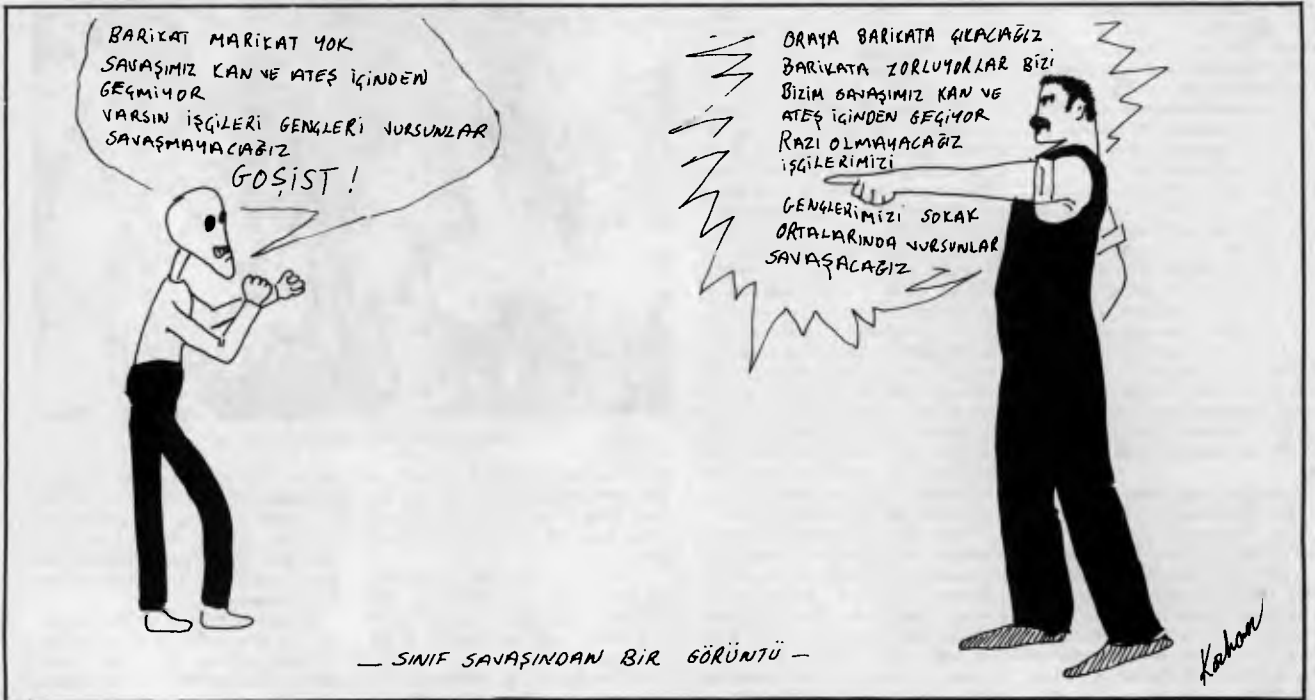 BARİKAT MARİKAT YOK
SAVAŞIMIZ KAN VE ATEŞ İÇİNDEN
GEÇMİYOR
VARSIN İŞÇİLERİ GENÇLERİ VURSUNLAR
SAVAŞMAYACAĞIZ
GOŞİST !
ORAYA BARİKATA ÇIKACAĞIZ
BARİKATA ZORLUYORLAR BİZİ
BİZİM SAVAŞIMIZ KAN VE
ATEŞ İÇİNDEN GEÇİYOR
RAZI OLMAYACAĞIZ
İŞÇİLERİMİZİ
GENÇLERİMİZİ SOKAK
ORTALARINDA VURSUNLAR
SAVAŞACAĞIZ
— SINIF SAVAŞINDAN BİR GÖRÜNTÜ —